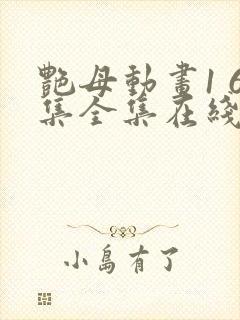 艷母動畫16
集全集在綫
小島有了